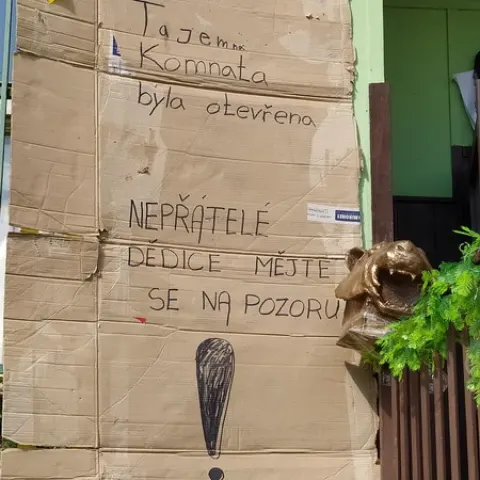 Tajemná
Komnata
byla otevřena
NEPŘÁTELÉ
DĚDICE MĚJTE
SE NA POZORU
!